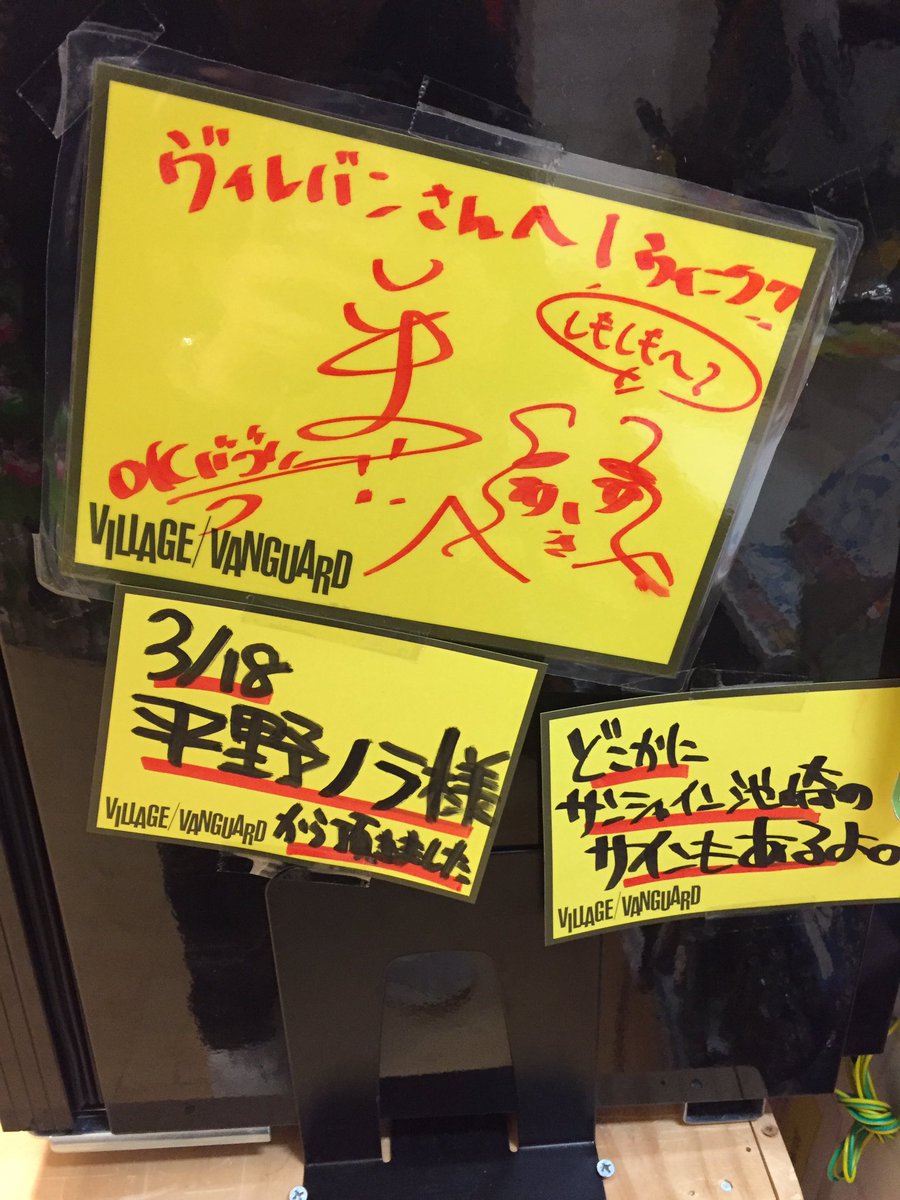 ヴィレバンさんへ
しもしも〜?
OKバブリー
VILLAGE/VANGUARD
3/18
平野ノラ様
から頂きました
VILLAGE/VANGUARD
どこかに
サンシャイン池崎の
サインもあるよ。
VILLAGE/VANGUARD